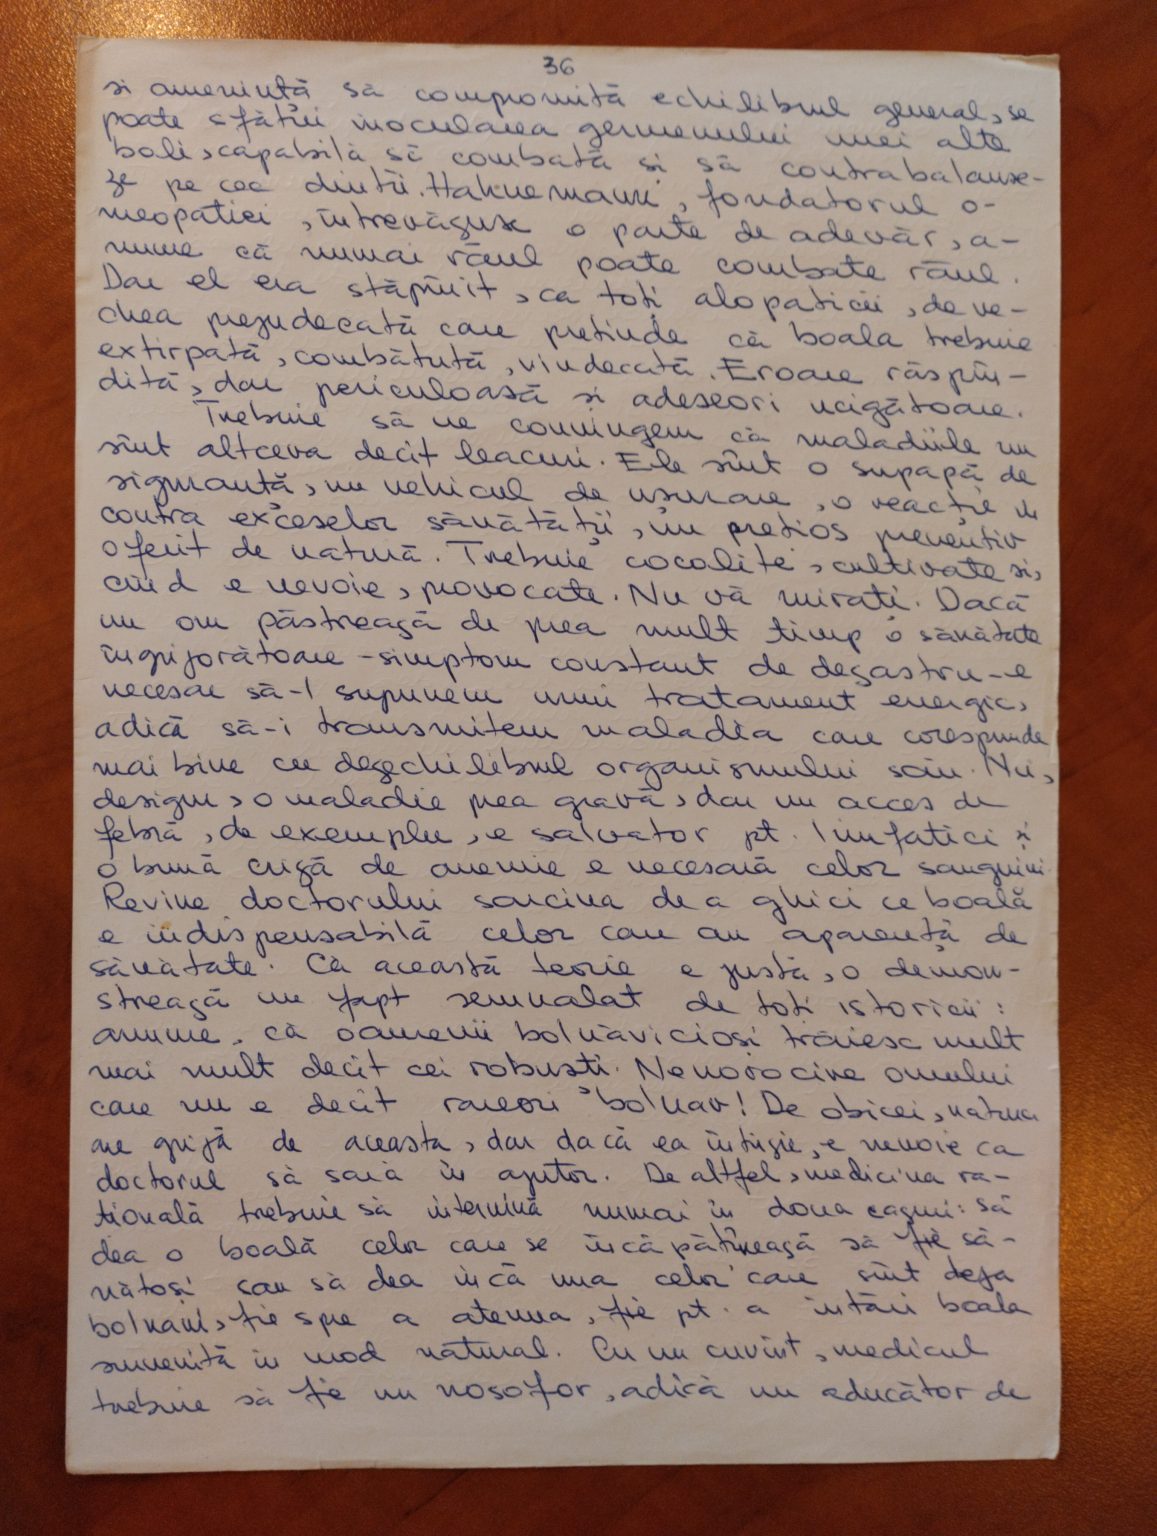 36
si amenintă să compromită echilibrul general, se
poate sfătui inocularea germenului unei alte
boli, capabilă să combată si să contrabalanse-
ze pe cea dintîi. Hahnemann, fondatorul o-
meopatiei, întrevăzuse o parte de adevăr, a-
nume că numai răul poate combate răul.
Dar el era stăpînit, ca toți alopaticii, de ve-
chea prejudecată care pretinde că boala trebuie
extirpată, combătută, vindecată. Eroare răspîn-
dită, dar periculoasă și adeseori ucigătoare.
Trebuie să ne convingem că maladiile nu
sînt altceva decît leacuri. Ele sînt o supapă de
siguranță, un vehicul de ușurare, o reacție în
contra exceselor sănătății, un prețios preventiv
oferit de natură. Trebuie cocolite, cultivate si,
cînd e nevoie, provocate. Nu vă mirați. Dacă
un om păstrează de prea mult timp o sănătate
îngrijorătoare - simptom constant de dezastru - e
necesar să-l supunem unui tratament energic,
adică să-i transmitem maladia care corespunde
mai bine cu dezechilibrul organismului său. Nu,
desigur, o maladie prea gravă, dar un acces de
febră, de exemplu, e salvator pt. limfatici și
o bună criză de anemie e necesară celor sanguini.
Revine doctorului sarcina de a ghici ce boală
e indispensabilă celor care au aparență de
sănătate. Că această teorie e justă, o demon-
strează un fapt semnalat de toți istoricii:
anume, că oamenii bolnăvicioși trăiesc mult
mai mult decît cei robusti. Nenorocire omului
care nu e decît rareori bolnav! De obicei, natura
are grijă de aceasta, dar dacă ea întîrzie, e nevoie ca
doctorul să sară în ajutor. De altfel, medicina ra-
țională trebuie să intervină numai în doua cazuri: să
dea o boală celor care se încăpățînează să fie să-
nătoși sau să dea încă una celor care sînt deja
bolnavi, fie spre a atenua, fie pt. a întări boala
survenită în mod natural. Cu un cuvînt, medicul
trebuie să fie un nosofor, adică un aducător de